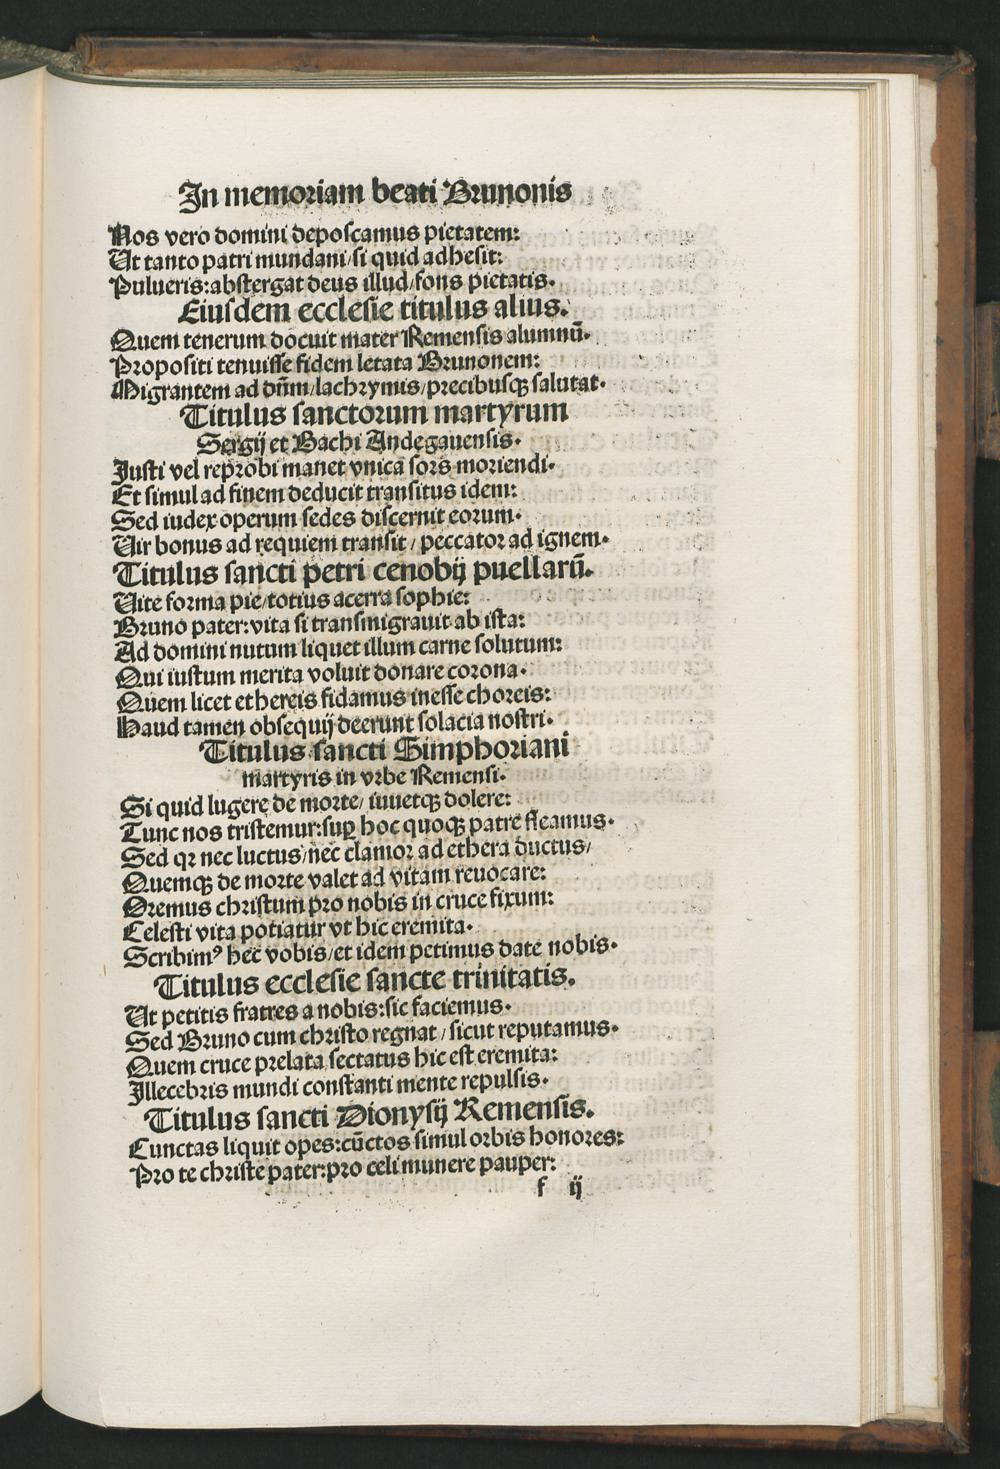 In memoriam beati Brunonis
Nos vero domini deposcamus pietatem:
Ut tanto patri mundani/si quid adhesit:
Pulueris:abstergat deus illud/fons pietatis.
Eiusdem ecclesie titulus alius.
Quem tenerum docuit mater Remensis alumnū.
Propositi tenuisse fidem letata Brunonem:
Migrantem ad dn̄m/lachrymis/precibusqꝫ salutat.
Titulus sanctorum martyrum
Sergij et Bachi Andegauensis.
Justi vel reprobi manet vnica sors moriendi.
Et simul ad finem deducit transitus idem:
Sed iudex operum sedes discernit eorum.
Uir bonus ad requiem transit/peccator ad ignem.
Titulus sancti petri cenobij puellarū.
Uite forma pie/totius acerra sophie:
Bruno pater:vita si transmigrauit ab ista:
Ad domini nutum liquet illum carne solutum:
Qui iustum merita voluit donare corona.
Quem licet ethereis fidamus inesse choreis:
Haud tamen obsequij deerunt solacia nostri.
Titulus sancti Simphoriani
martyris in vrbe Remensi.
Si quid lugere de morte/iuuetqꝫ dolere:
Tunc nos tristemur:sup̱ hoc quoqꝫ patre fleamus.
Sed qꝛ nec luctus/nec clamor ad ethera ductus/
Quemqꝫ de morte valet ad vitam reuocare:
Oremus christum pro nobis in cruce fixum:
Celesti vita potiatur vt hic eremita.
Scribimꝰ hec vobis/et idem petimus date nobis.
Titulus ecclesie sancte trinitatis.
Ut petitis fratres a nobis:sic faciemus.
Sed Bruno cum christo regnat/sicut reputamus.
Quem cruce prelata sectatus hic est eremita:
Illecebris mundi constanti mente repulsis.
Titulus sancti Dionysij Remensis.
Cunctas liquit opes:cūctos simul orbis honores:
Pro te christe pater:pro celi munere pauper:
f ij